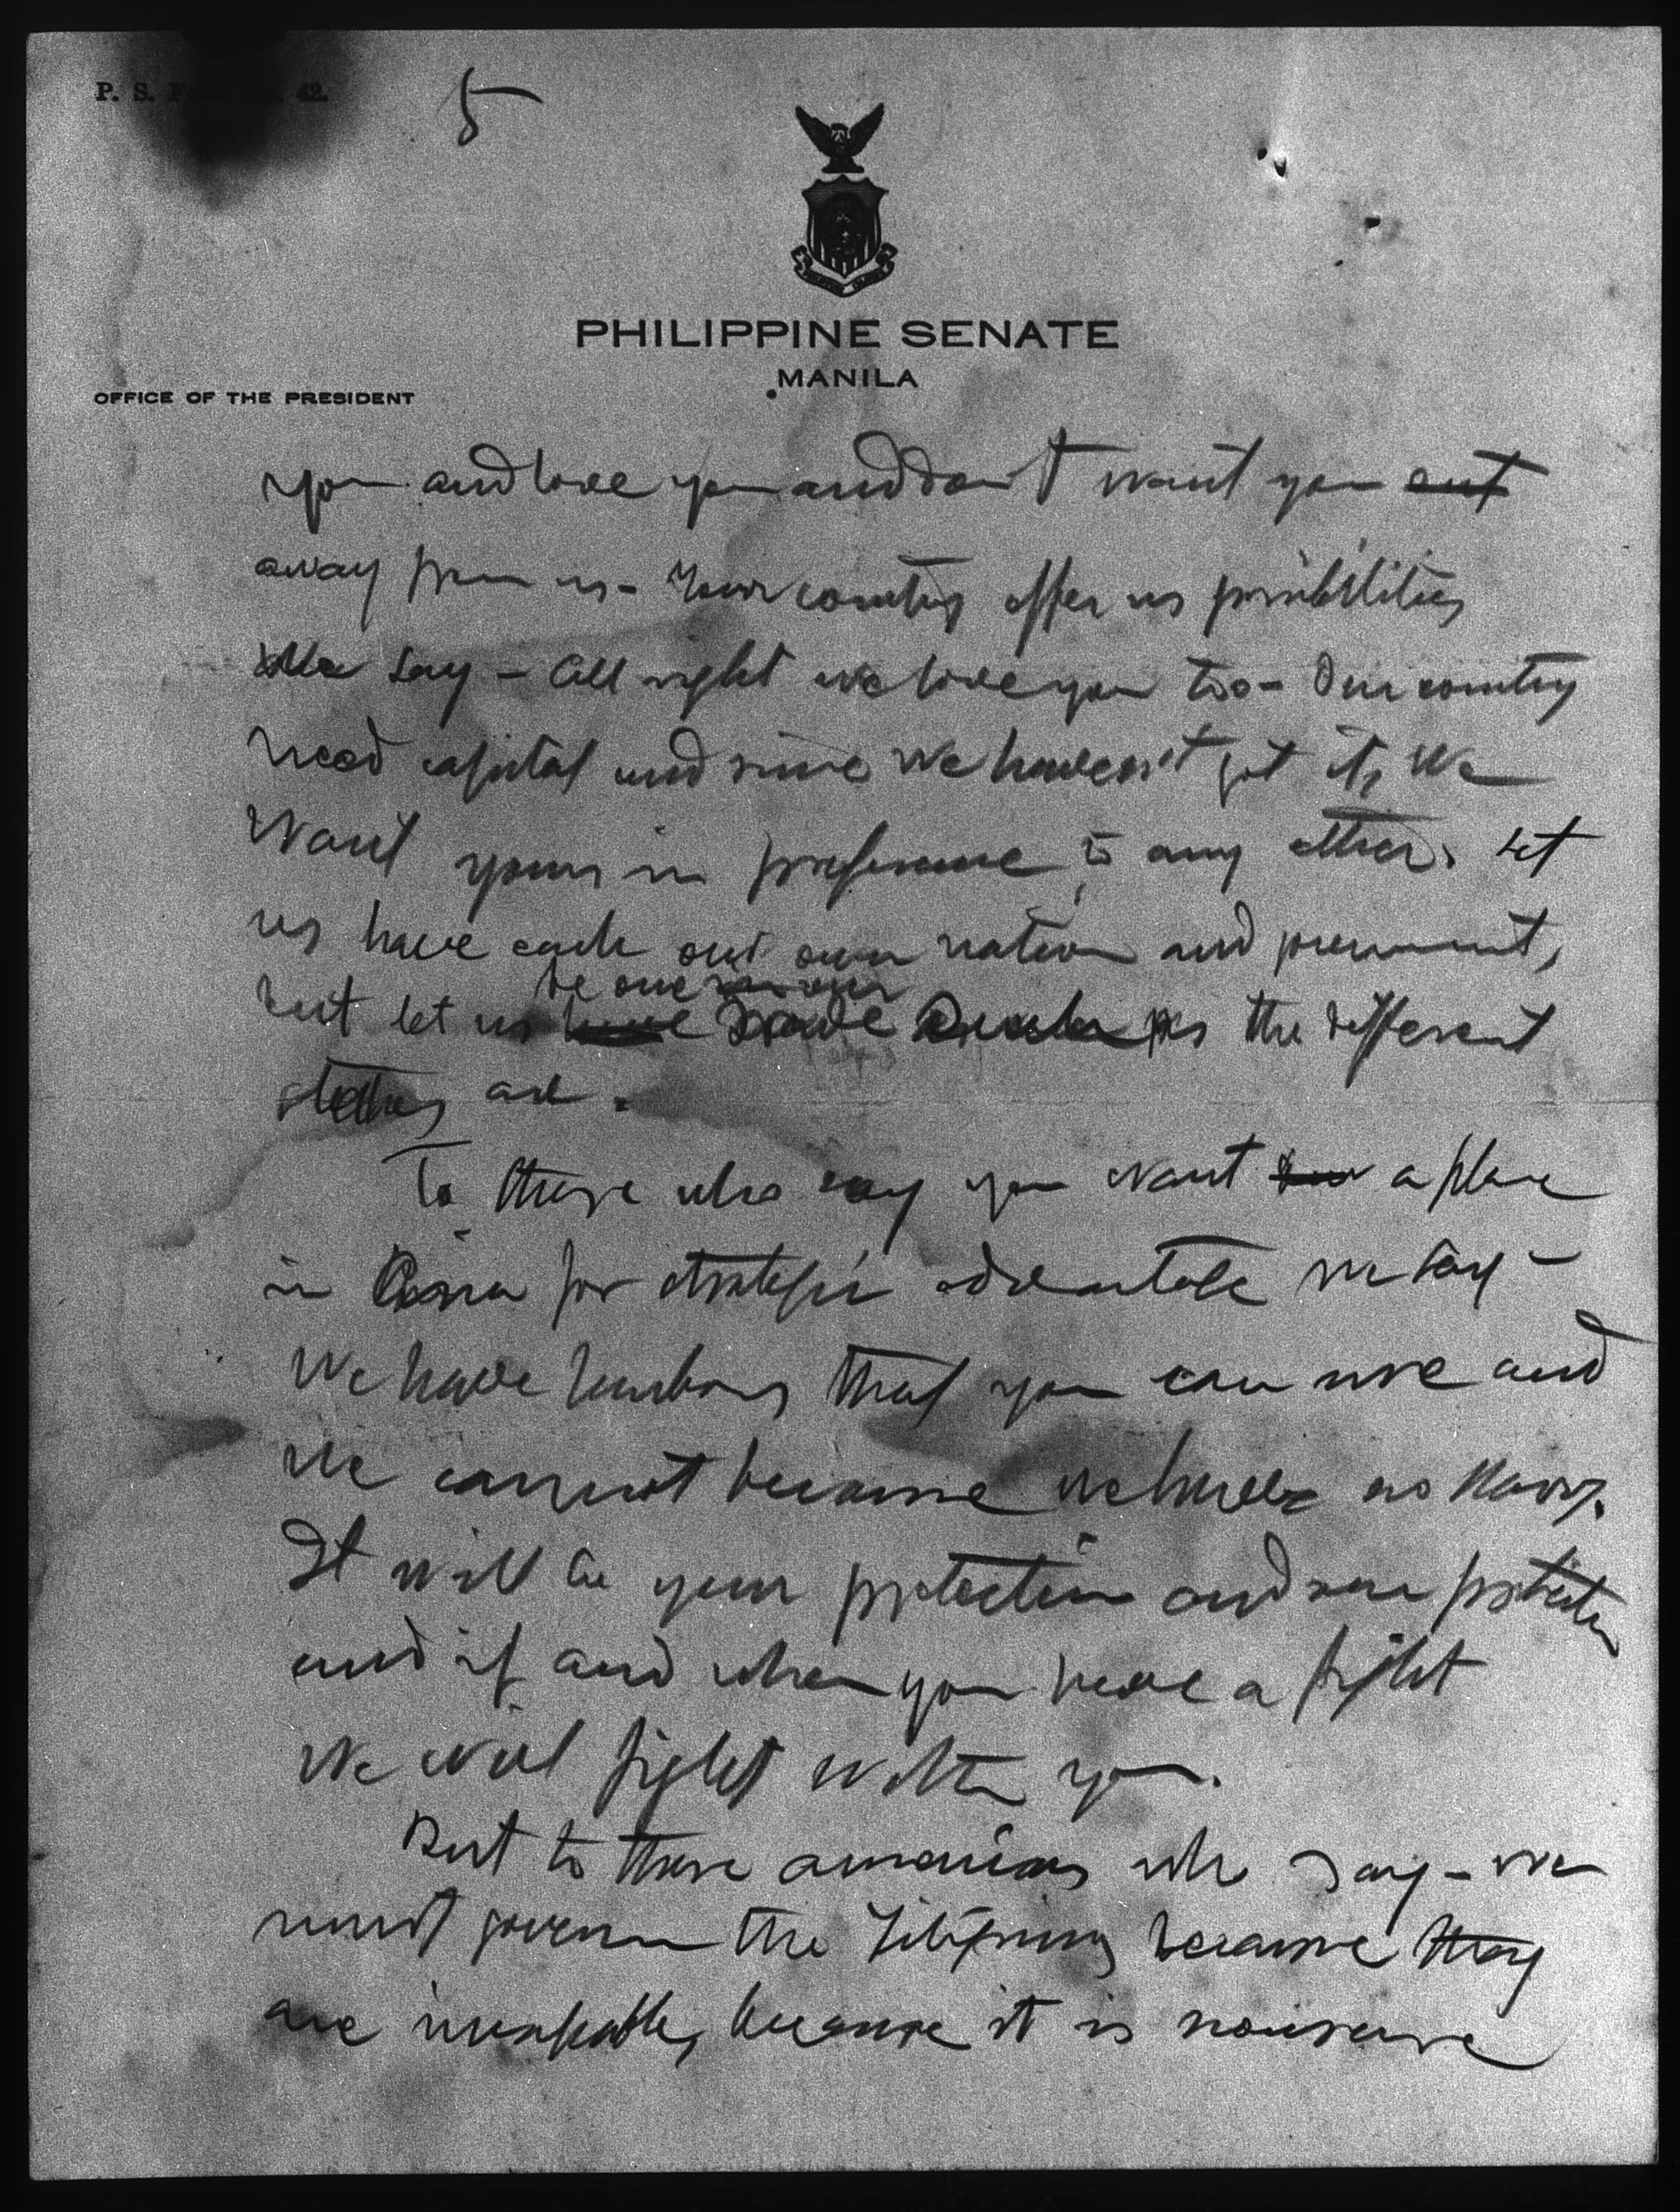 P. S. F 42.
5
PHILIPPINE SENATE
MANILA
OFFICE OF THE PRESIDENT
you and love you and don't want you out
away from us - Your country offer us possibilities
We say - All right we love you too - Our country
need capital and since we haven't got it, we
want yours in preference to any other. Let
us have each our own nation and government,
be one
but let us have trade as the different
states are.
To those who say you want a place
in Asia for strategic advantage we say -
We have harbors that you can use and
we cannot because we have no Navy.
It will be your protection and our protection
and if and when you have a fight
We will fight with you.
But to those americans who say - we
must govern the Filipinos because they
are incapable, because it is nonsense